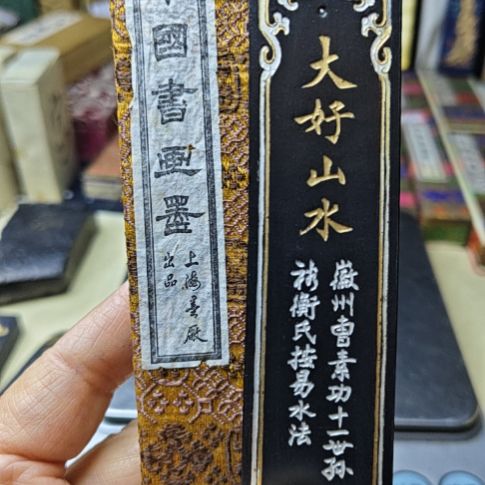 國書画墨
上海墨厰
出品
大好山水
徽州曹素功十一世孙
衡氏按易水法